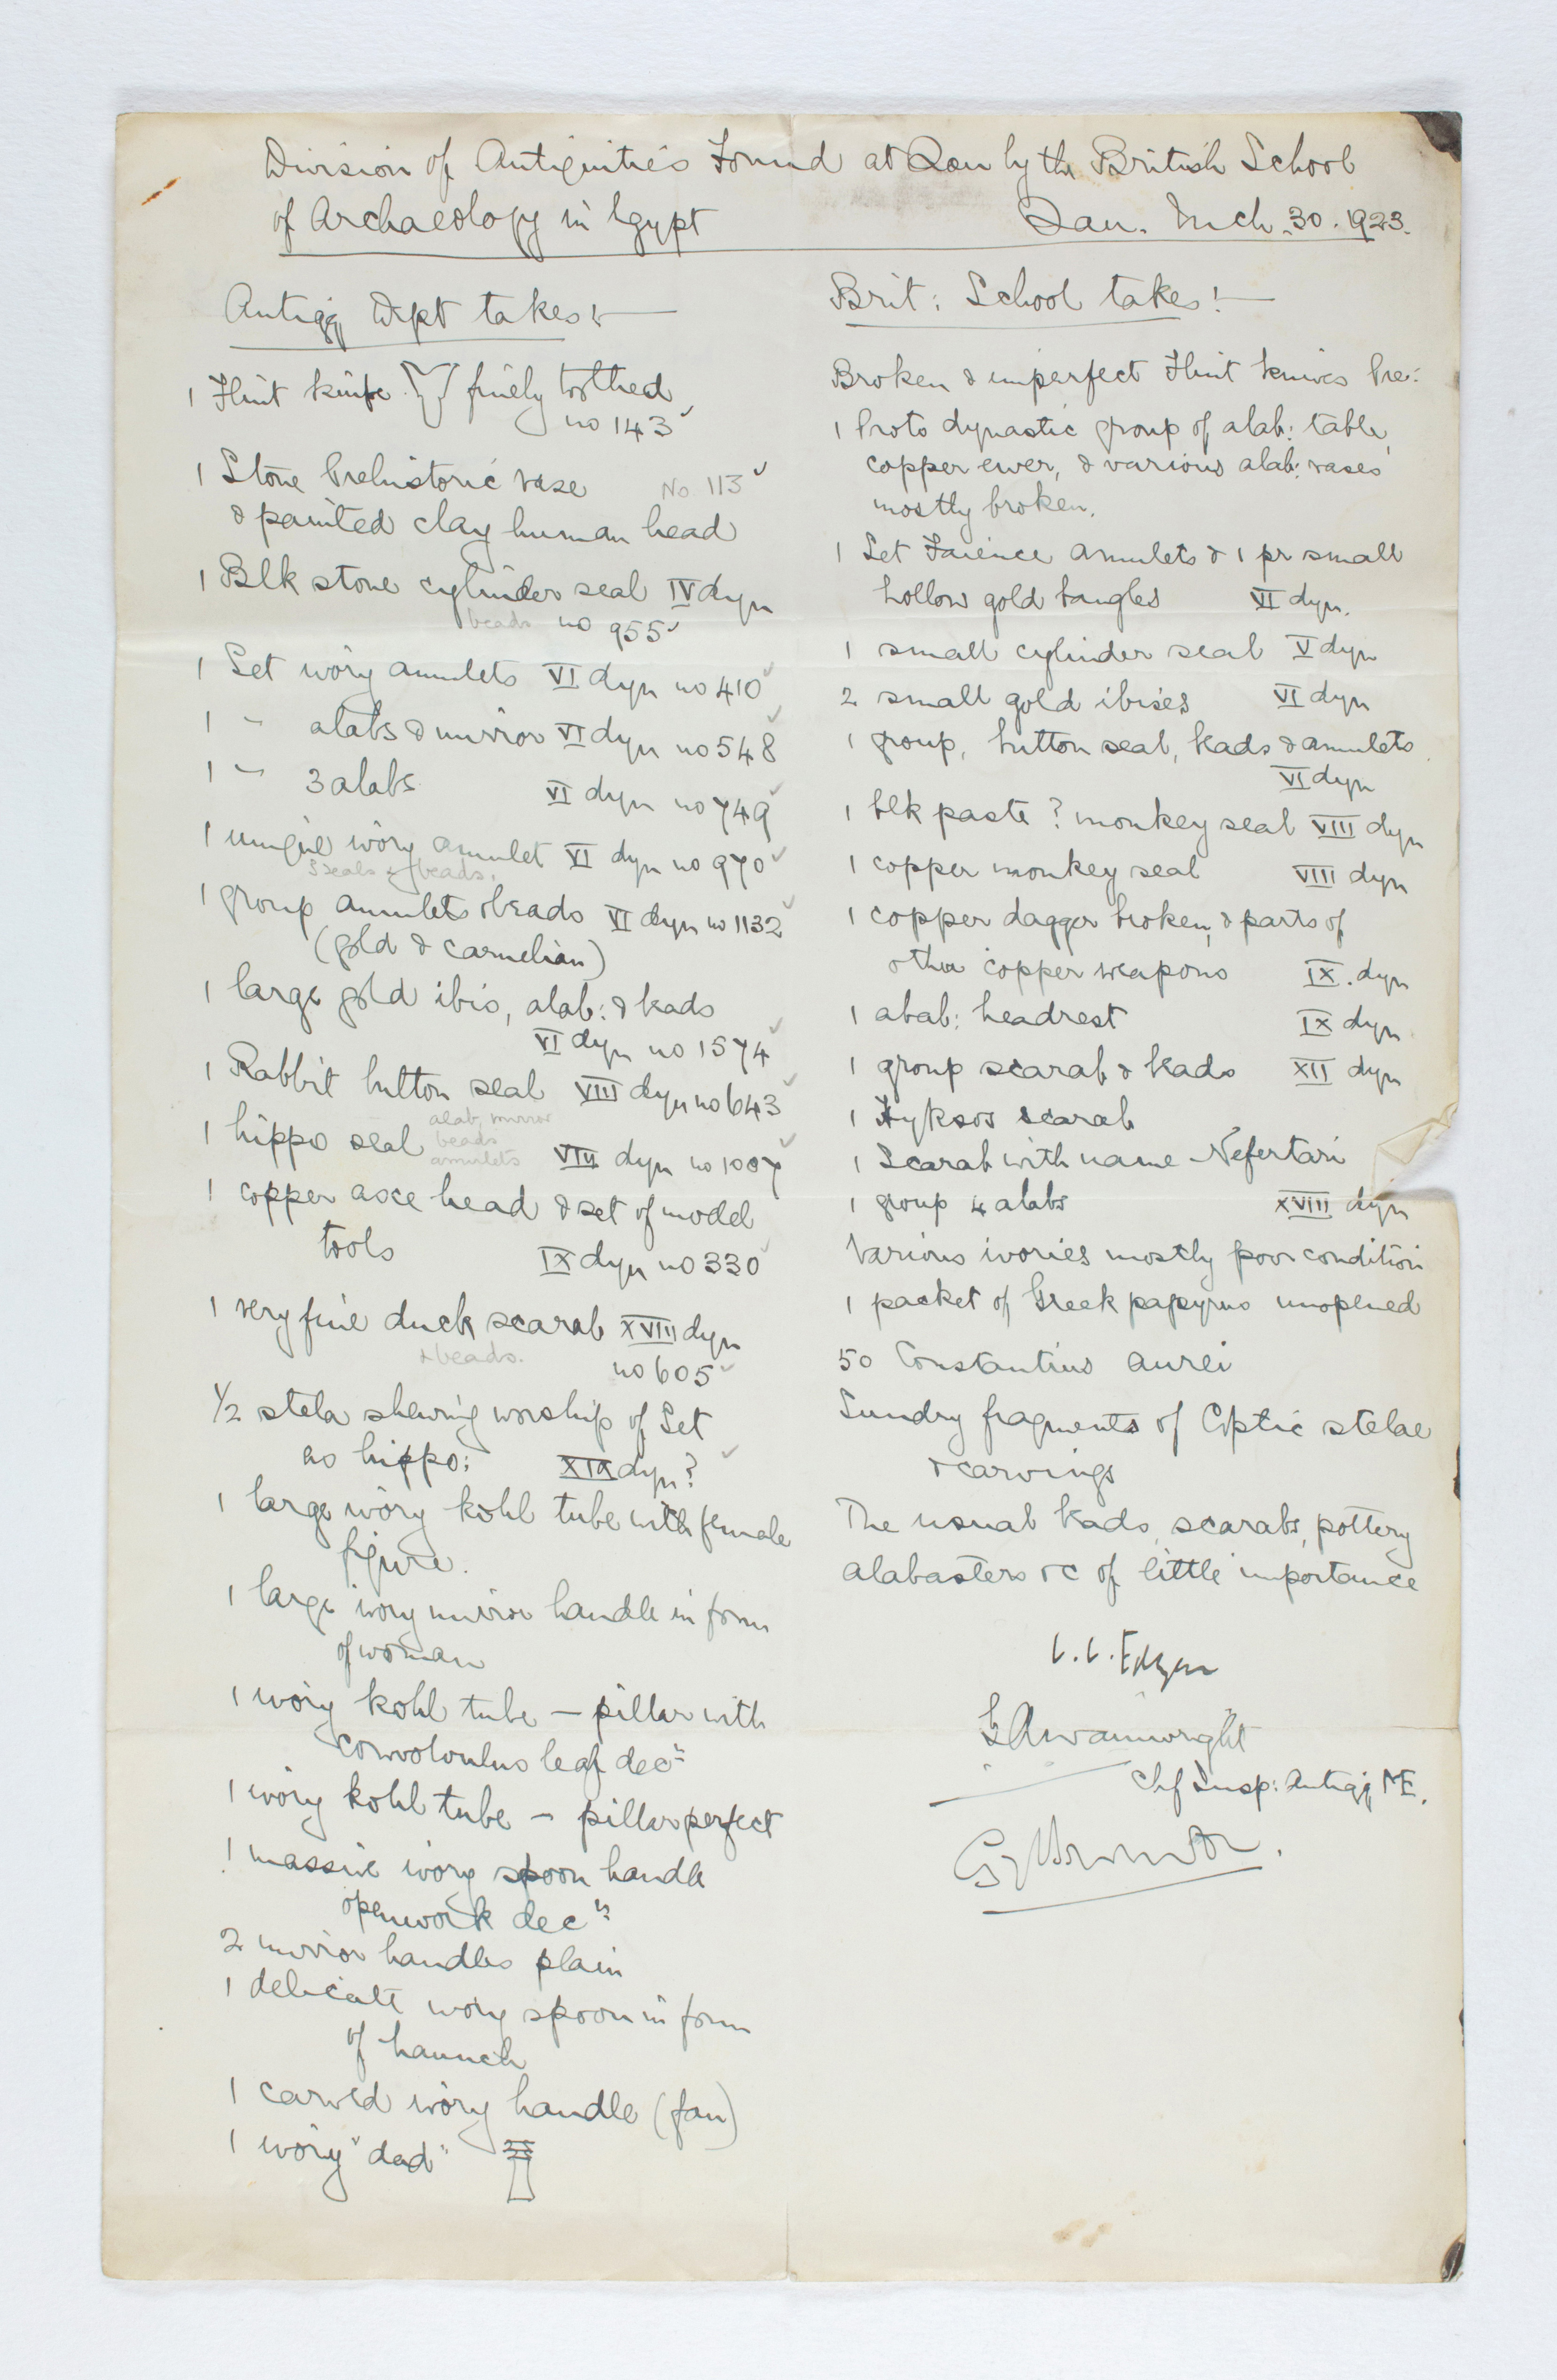 Division of Antiquities Found at Qau by the British School
of Archaeology in Egypt
Qau. Mch. 30. 1923.
Antiqq Dept takes:—
1 Flint knife finely toothed
no 143
1 Stone Prehistoric vase No. 113
& painted clay human head
1 Blk stone cylinder seal IV dyn
beads no 955
1 Set ivory amulets VI dyn no 410
1 " alabs & mirror VI dyn no 548
1 " 3 alabs VI dyn no 749
1 unique ivory amulet VI dyn no 970
5 seals & beads.
1 group amulets & beads VI dyn no 1132
(gold & carnelian)
1 large gold ibis, alab: & beads
VI dyn no 1574
1 Rabbit button seal VIII dyn no 643
alab, mirror
1 hippo seal beads VIII dyn no 1007
amulets
1 copper axe head & set of model
tools IX dyn no 330
1 very fine duck scarab XVIII dyn
& beads. no 605
1/2 stela shewing worship of Set
as hippo: XIX dyn?
1 large ivory kohl tube with female
figure.
1 large ivory mirror handle in form
of woman
1 ivory kohl tube — pillar with
convolvulus leaf decn
1 ivory kohl tube — pillar perfect
1 massive ivory spoon handle
openwork decn
2 mirror handles plain
1 delicate ivory spoon in form
of haunch
1 carved ivory handle (fan)
1 ivory "dad"
Brit: School takes:—
Broken & imperfect Flint knives Pre:
1 Proto dynastic group of alab: table,
copper ewer, & various alab: vases
mostly broken.
1 Set Faience amulets & 1 pr small
hollow gold bangles VI dyn.
1 small cylinder seal V dyn
2 small gold ibises VI dyn
1 group, button seal, beads & amulets
VI dyn
1 blk paste? monkey seal VIII dyn
1 copper monkey seal VIII dyn
1 copper dagger broken, & parts of
other copper weapons IX. dyn
1 alab: headrest IX dyn
1 group scarab & beads XII dyn
1 Hyksos scarab
1 Scarab with name Nefertari
1 group 4 alabs XVIII dyn
Various ivories mostly poor condition
1 packet of Greek papyrus unopened
50 Constantius aurei
Sundry fragments of Coptic stelae
& carvings
The usual beads, scarabs, pottery
alabasters &c of little importance
C. C. Edgar
G A Wainwright
Chf Insp: Antiqq M.E.
G Brunton.